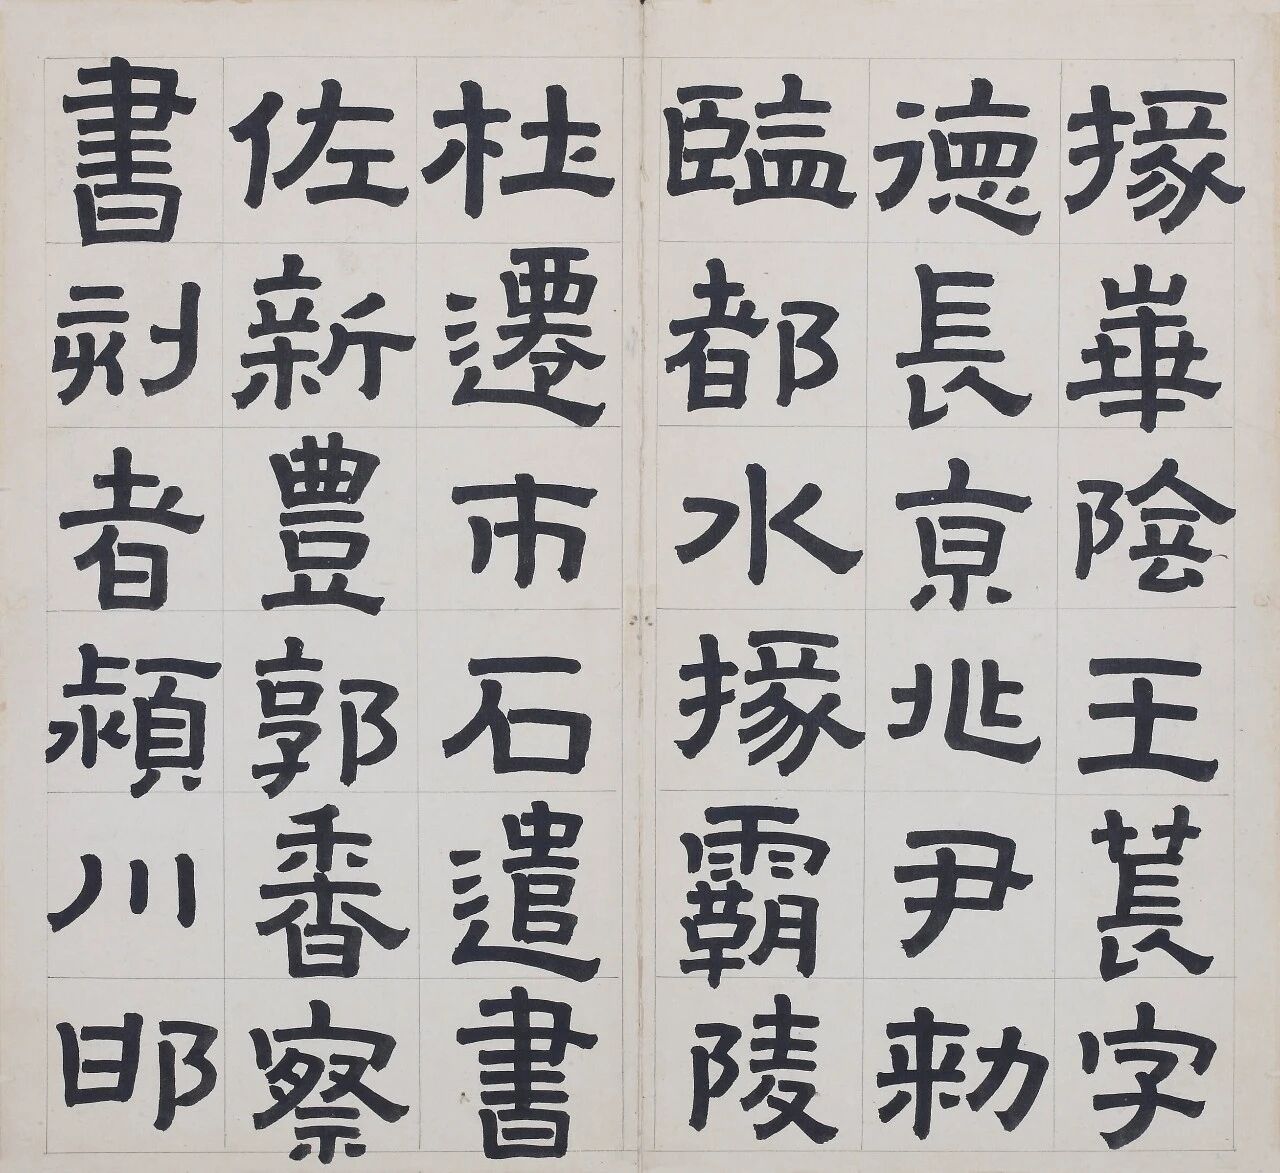 掾華陰王萇字
德長亰兆尹勑
監都水掾霸陵
杜遷市石遣書
佐新豐郭香察
書刻者潁川邯